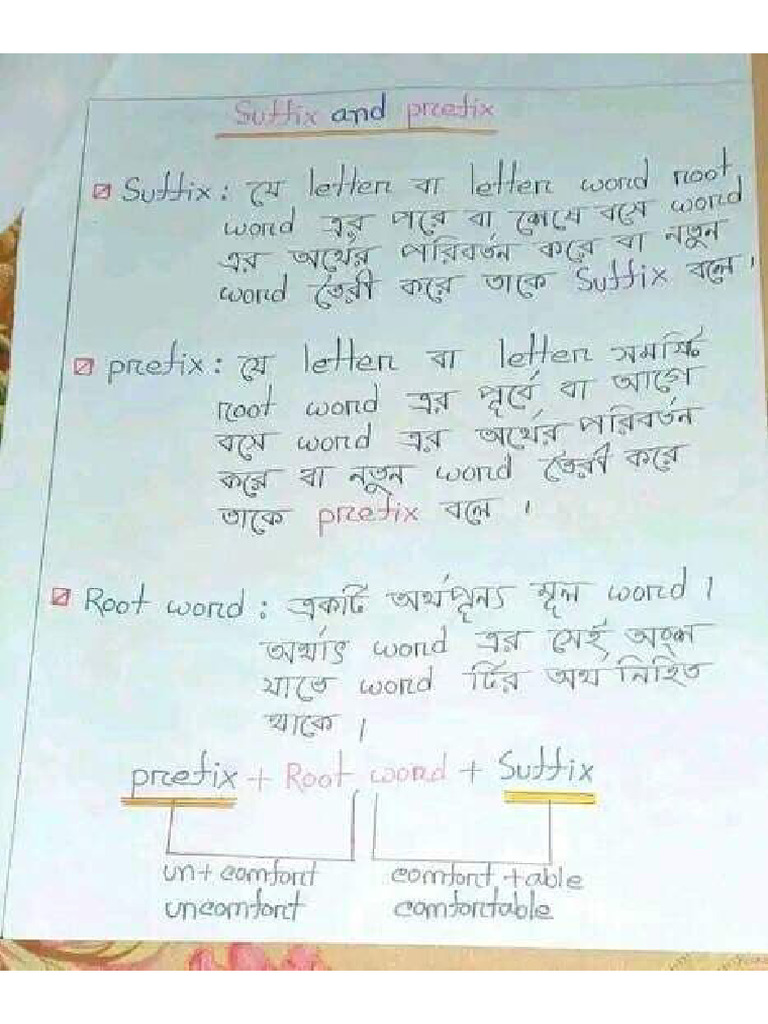 Suffix and prefix
Suffix: যে letter বা letter word root
word এর পরে বা শেষে বসে word
এর অর্থের পরিবর্তন করে বা নতুন
word তৈরী করে তাকে Suffix বলে।
prefix: যে letter বা letter সমষ্টি
root word এর পূর্বে বা আগে
বসে word এর অর্থের পরিবর্তন
করে বা নতুন word তৈরী করে
তাকে prefix বলে ।
Root word: একটি অর্থপূন্য মূল word।
অর্থাৎ word এর সেই অংশ
যাতে word টির অর্থ নিহিত
থাকে।
prefix + Root word + Suffix
un+comfort comfort +able
uncomfort comfortable